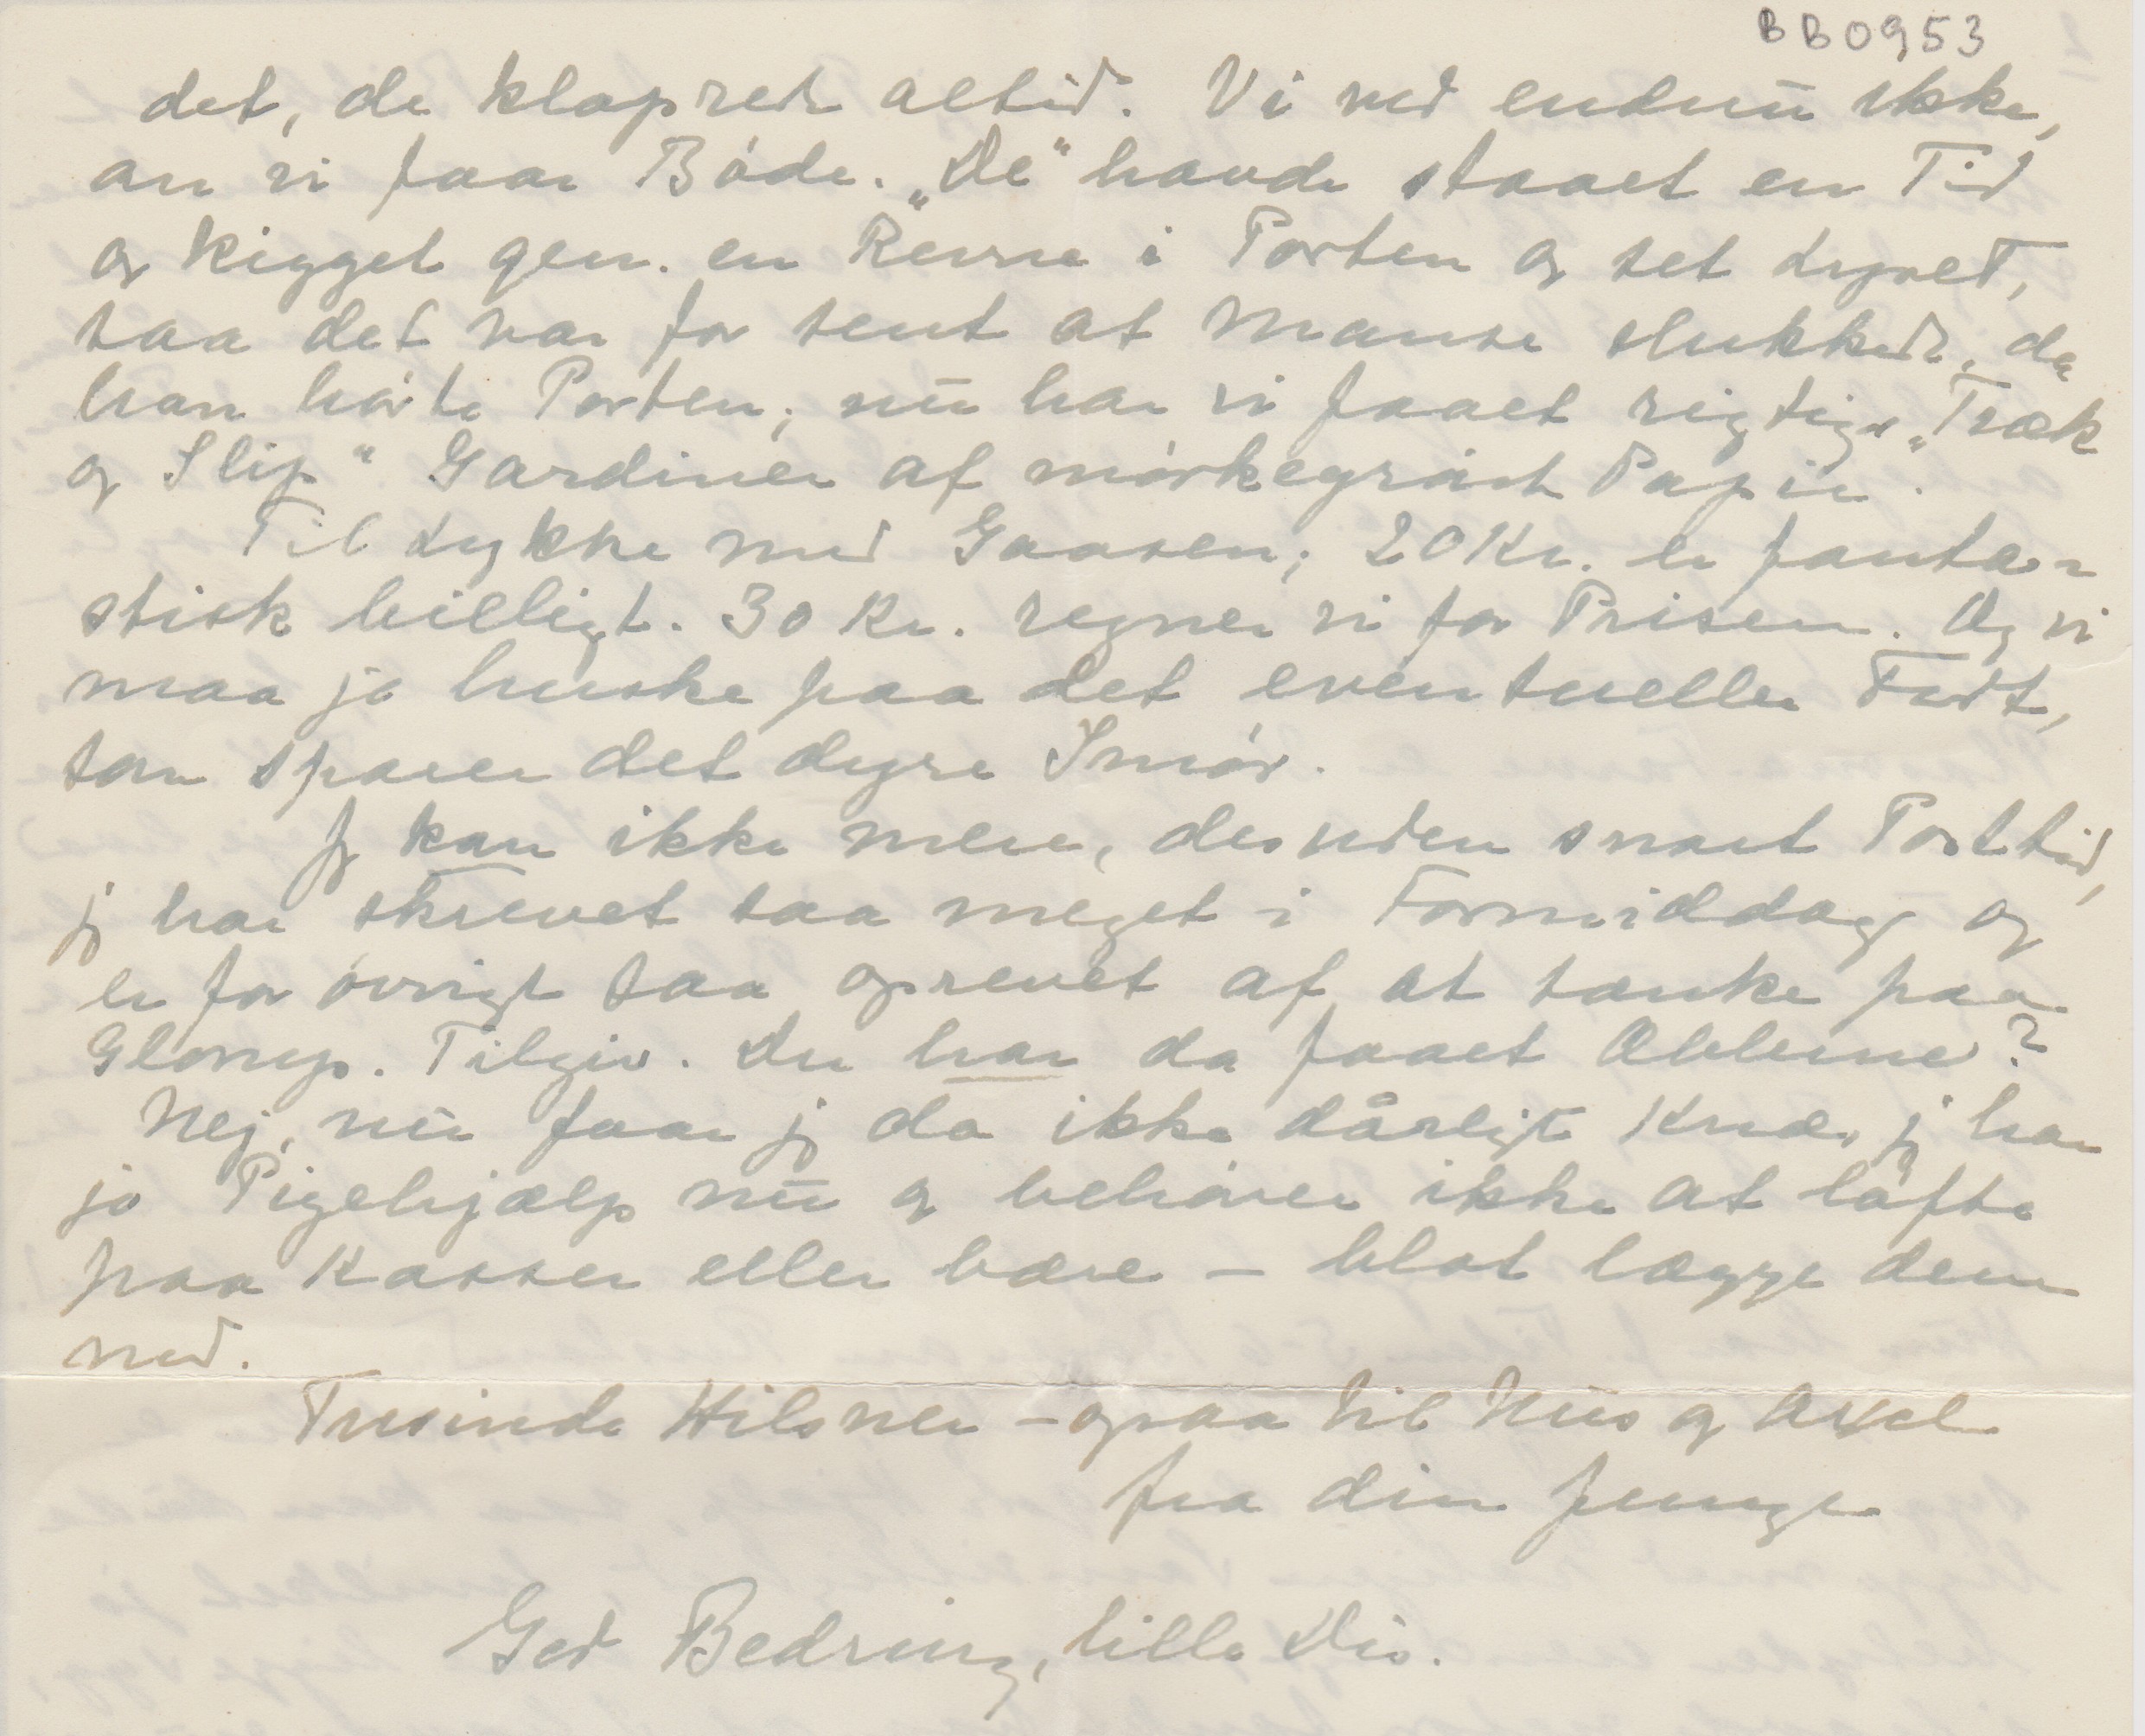 BB0953
det, de klaprede altid. Vi ved endnu ikke,
om vi faar Bøde. „De“ havde staaet en Tid
og kigget gen. en Revne i Porten og set Lyset,
saa det var for sent at Manse slukkede, da
han hørte Porten; nu har vi faaet rigtige „Træk
og Slip“ Gardiner af mørkegrønt Papir.
Til Lykke med Gaasen; 20 Kr. er fanta-
stisk billigt. 30 Kr. regner vi for Prisen. Og vi
maa jo huske paa det eventuelle Fedt,
som sparer det dyre Smør.
Jeg kan ikke mere, desuden snart Posttid,
jeg har skrevet saa meget i Formiddag og
er for øvrigt saa oprevet af at tænke paa
Glorup. Tilgiv. Du har da faaet Æblerne?
Nej, nu faar jeg da ikke dårligt Knæ, jeg har
jo Pigehjælp nu og behøver ikke at løfte
paa Kasser eller bære – blot lægge dem
ned.
Tusinde Hilsner – ogsaa til Nus og Axel
fra din Junge
God Bedring, lille Dis.